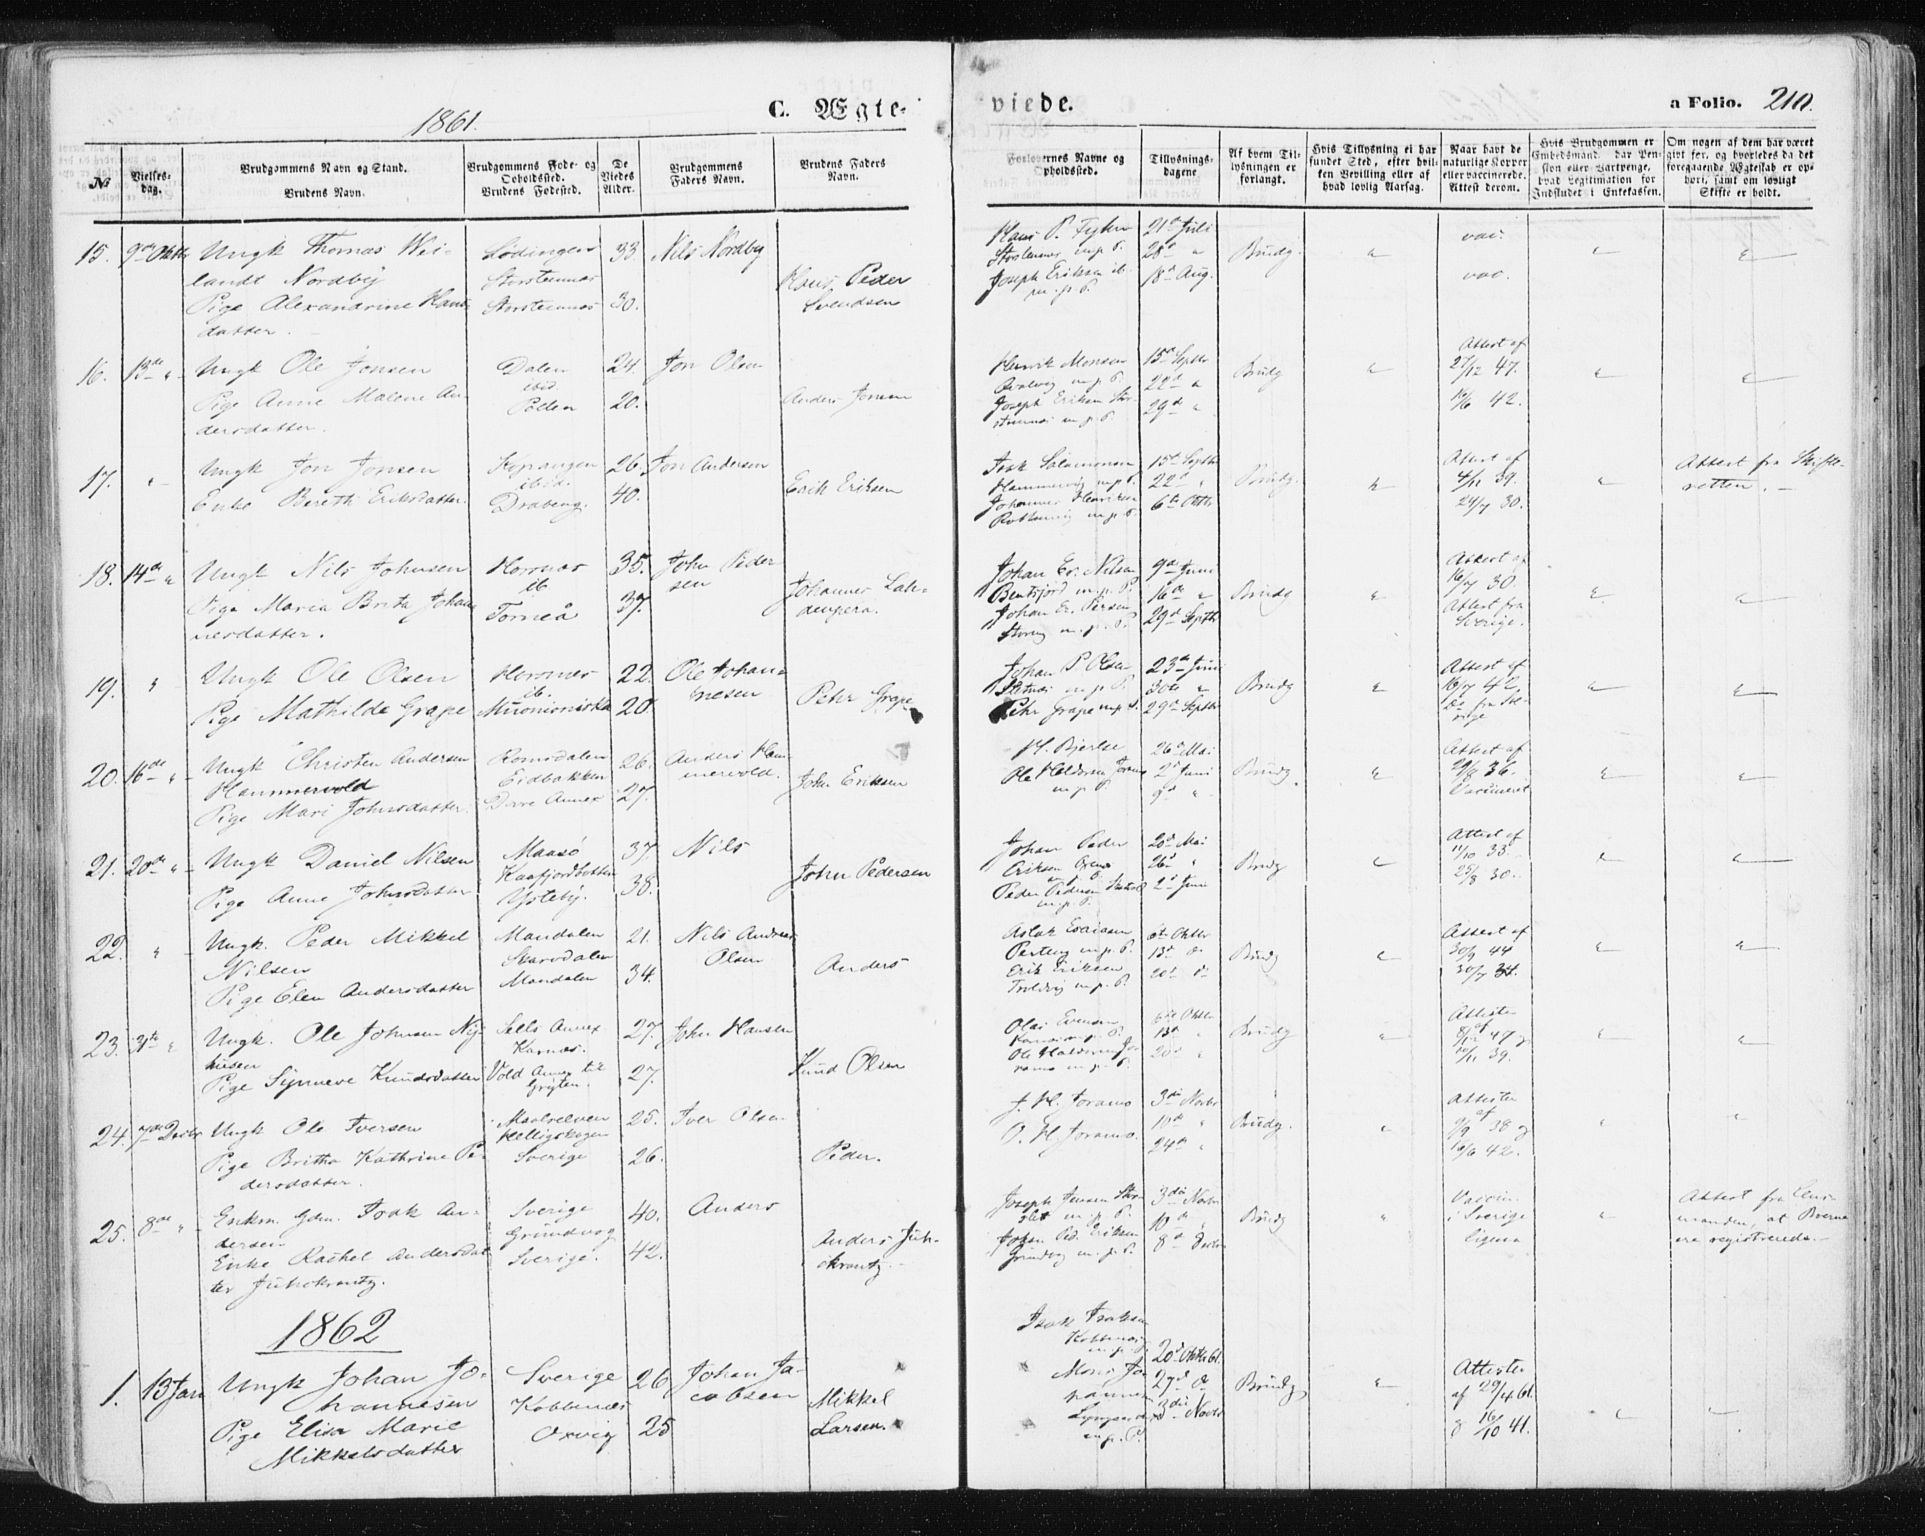 1861.
C. Ægte-
viede.
a Folio. 210.
No
Vielses-
dag.
Brudgommens Navn og Stand.
Brudens Navn.
Brudgommens Føde- og
Opholdssted.
Brudens Fødested.
De
Viedes
Alder.
Brudgommens
Faders Navn.
Brudens Faders
Navn.
Forlovernes Navne og
Opholdssted.
Tillysnings-
dagene
Af hvem Til-
lysningen er
forlangt.
Hvis Tillysning ei har
fundet Sted, efter hvil-
ken Bevilling eller af
hvad lovlig Aarsag.
Naar havt de
naturlige Kopper
eller vaccinerede.
Attest derom.
Hvis Brudgommen er
Embedsmand, dar Pen-
sion eller Vartpenge,
hvad Legitimation for
Indskudet i Enkekassen.
Om nogen af dem har været
gift før, og hvorledes da det
foregaaende Ægteskab er op-
hørt, samt om lovligt
Skifte er holdt.
15. 9de Oktbr Ungk Thomas Wei-
landt Nordby
Pige Alexandrine Hans-
datter.
Lødingen
Storsteennes
Storsteennes
33.
30.
Nils Nordby
Hans Peder
Svendsen
Storsteennes m.p.P.
Joseph Eriksen ib.
m.p.P.
21de Juli
28de "
18de Aug.
Brudg.
vac.
vac.
16. 13de " Ungk Ole Jonsen
Pige Anne Malene An-
dersdatter.
Dalen
ibid
Pollen
24.
20.
Jon Olsen
Anders Jonsen
Henrik Monsen
m.p.P.
Joseph Eriksen Stor-
steennes m.p.P.
15de Septbr
22de "
29de "
Brudg
Attest af
27/12 47.
19/6 42.
17. " Ungk Jon Jonsen
Enke Bereth Eriksdatter
Kopangen
ibid.
Drabeng.
26.
40.
Jon Andersen
Erik Eriksen
Isak Salamonsen
Hammervig m.p.P.
Johannes Henriksen
m.p.P.
15de Septbr
22de "
6te Oktbr
Brudg.
Attest af
4/11 39.
24/7 30.
Attest fra Skifte-
retten.
18. 14de " Ungk Nils Johnsen
Pige Maria Brita Johan-
nesdatter.
Horsnes
ib
Torneå
35.
37.
John Peder
sen
Johannes Lah-
denpera.
Johan Er. Nilsen
Bentsjord m.p.P.
Johan Er. Persen
m.p.P.
9de Juni
16de "
29de Septbr
Brudg
Attest af
16/7 30.
Attest fra
Sverige.
19. " Ungk Ole Olsen
Pige Mathilde Grape
Horsnes
ib.
Muonioniska
22.
20.
Ole Johan-
nesen
Pehr Grape
Johan P Olsen
m.p.P.
Pehr Grape m.p.P.
23de Juni
30de "
29de Septbr
Brudg
Attest af
16/7 42
Do fra Sve-
rige
20. 16de " Ungk Christen Andersen
Hammervold
Pige Mari Johnsdatter.
Romsdalen
Eidbakken
Dovre Annex
26.
27.
Anders Ham-
mervold.
John Eriksen
H. Bjerke
Ole Haldorsen Joramo
m.p.P.
26de Mai
2de Juni
9de "
Brudg.
Attest af
29/8 36.
Vaccineret
21. 20de " Ungk Daniel Nilsen
Pige Anne Johnsdatter
Maasö
Kaafjordbotten
Ysteby.
37.
38.
Nils
John Pedersen
Johan Peder
Eriksen
m.p.P.
Peder Pedersen
m.p.P.
20de Mai
26de "
2de Juni
Brudg
Attest af
11/10 33.
25/8 30.
22. " Ungk. Peder Mikkel
Nilsen
Pige Elen Andersdatter
Mandalen
Skarsdalen
Mandalen
21.
34.
Nils Andreas
Olsen
Anders
Aslak Esaiasen
m.p.P.
Erik Eriksen
Troldvig m.p.P.
6te Oktbr
13de Do
20de Do
Brudg
Attest af
30/9 44
30/7 34.
23. 31te " Ungk. Ole Johnsen Ny-
husen
Pige Synneve Knudsdatter
Sells Annex
Karnæs.
Vold Annex til
Gryten.
27.
27.
John Hansen
Knud Olsen
Olai Evensen
m.p.P.
Ole Haldorsen Jo-
ramo m.p.P.
6te Oktbr
13de "
20de "
Brudg
Attester
af
8/12 47 og
10/11 39.
24. 7de Decbr Ungk Ole Iversen
Pige Britha Kathrine Pe-
dersdatter.
Maalselven
Helligskogen
Sverige
25.
26.
Iver Olsen
Peder.
J. H. Joramo
O. H. Joramo.
3die Novbr
10de "
24de "
Brudg.
Attester
af
9/9 38 og
19/6 42.
25. 8de " Enkm. Gdm. Isak An-
dersen
Enke Rachel Andersdat-
ter Juhckrantz.
Sverige
Grundvog
Sverige.
40.
42.
Anders
Anders Juh-
ckrantz.
Joseph Jensen Stor-
slet m.p.P.
Johan Ped. Eriksen
Grindvog m.p.P.
3die Novbr
10de "
8de Decbr
Brudg
Vaccin.
i Sverige
ligesaa
Attest fra Lens-
manden, at Boerne
ere registrerede.
1862
1. 13 Jan Ungk Johan Jo-
hannesen
Pige Elisa Marie
Mikkelsdatter
Sverige
Kobbenæs
Oxvig
26
25
Johan Ja-
cobsen
Mikkel
Larsen.
Isak Isaksen
Kobbenæs
m.p.P.
Mons Jo-
hannesen
Lyngseidet
m.p.P.
20de Oktbr 61.
27de Do
3die Novbr
Brudg
Attester
af 29/4 61.
og 16/10 41.